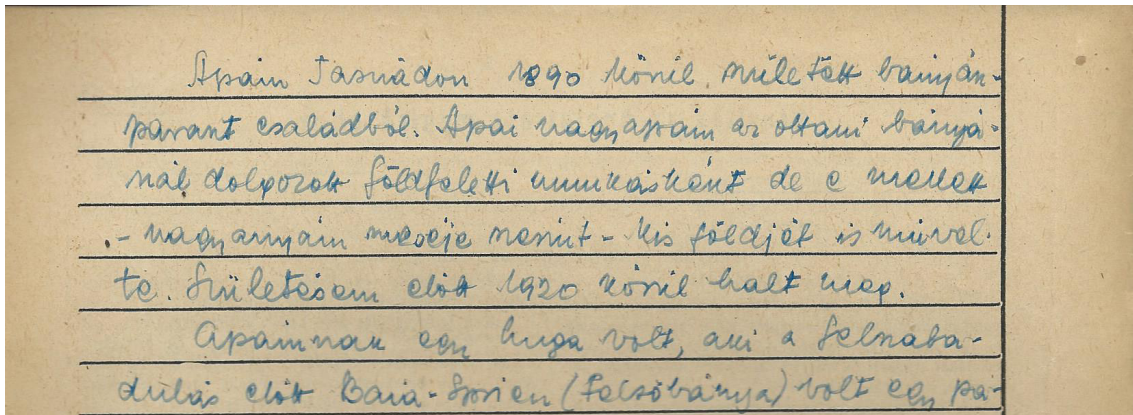 Apám Tasnádon 1890 körül született bányász-
paraszt családból. Apai nagyapám az ottani bányá-
nál dolgozott földfeletti munkásként de e mellett
- nagyanyám meséje szerint - kis földjét is művel-
te. Születésem előtt 1920 körül halt meg.
Apámnak egy huga volt, aki a felszaba-
dulás előtt Baia-Sprien (Felsőbánya) volt egy pa-